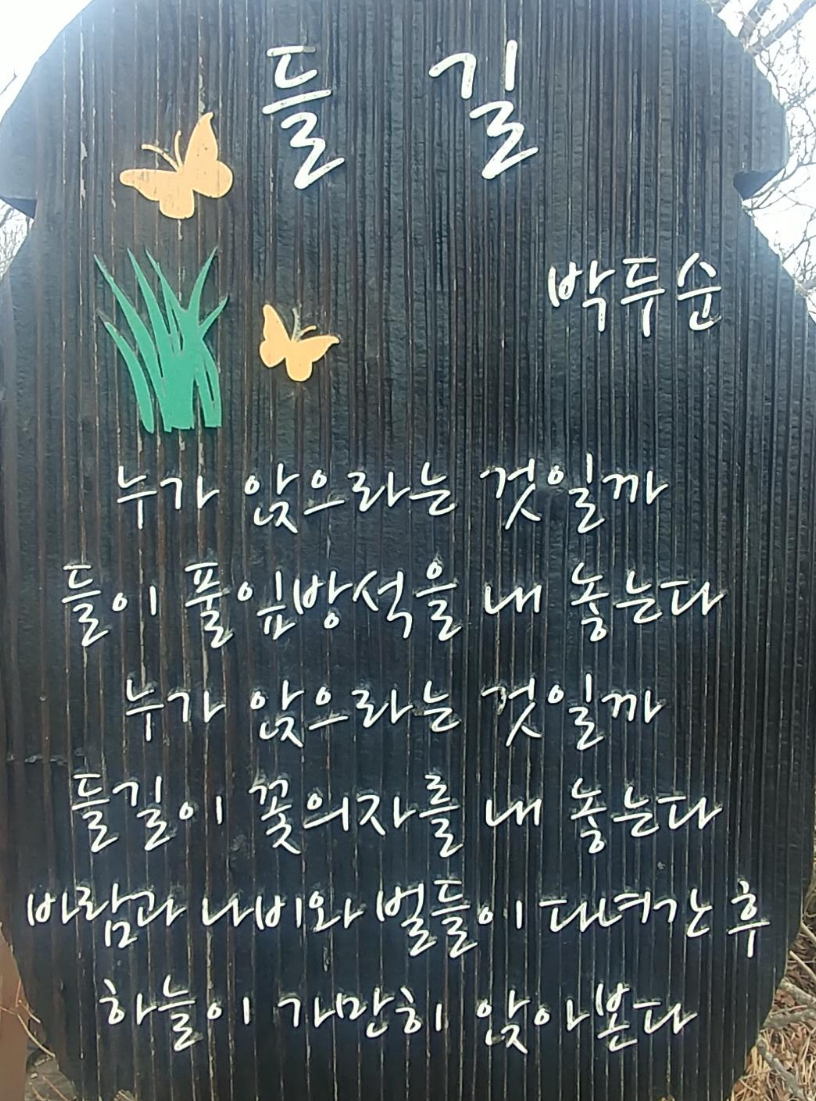 들 길
박두순
누가 앉으라는 것일까
들이 풀잎방석을 내 놓는다
누가 앉으라는 것일까
들길이 꽃의자를 내 놓는다
바람과 나비와 벌들이 다녀간 후
하늘이 가만히 앉아본다